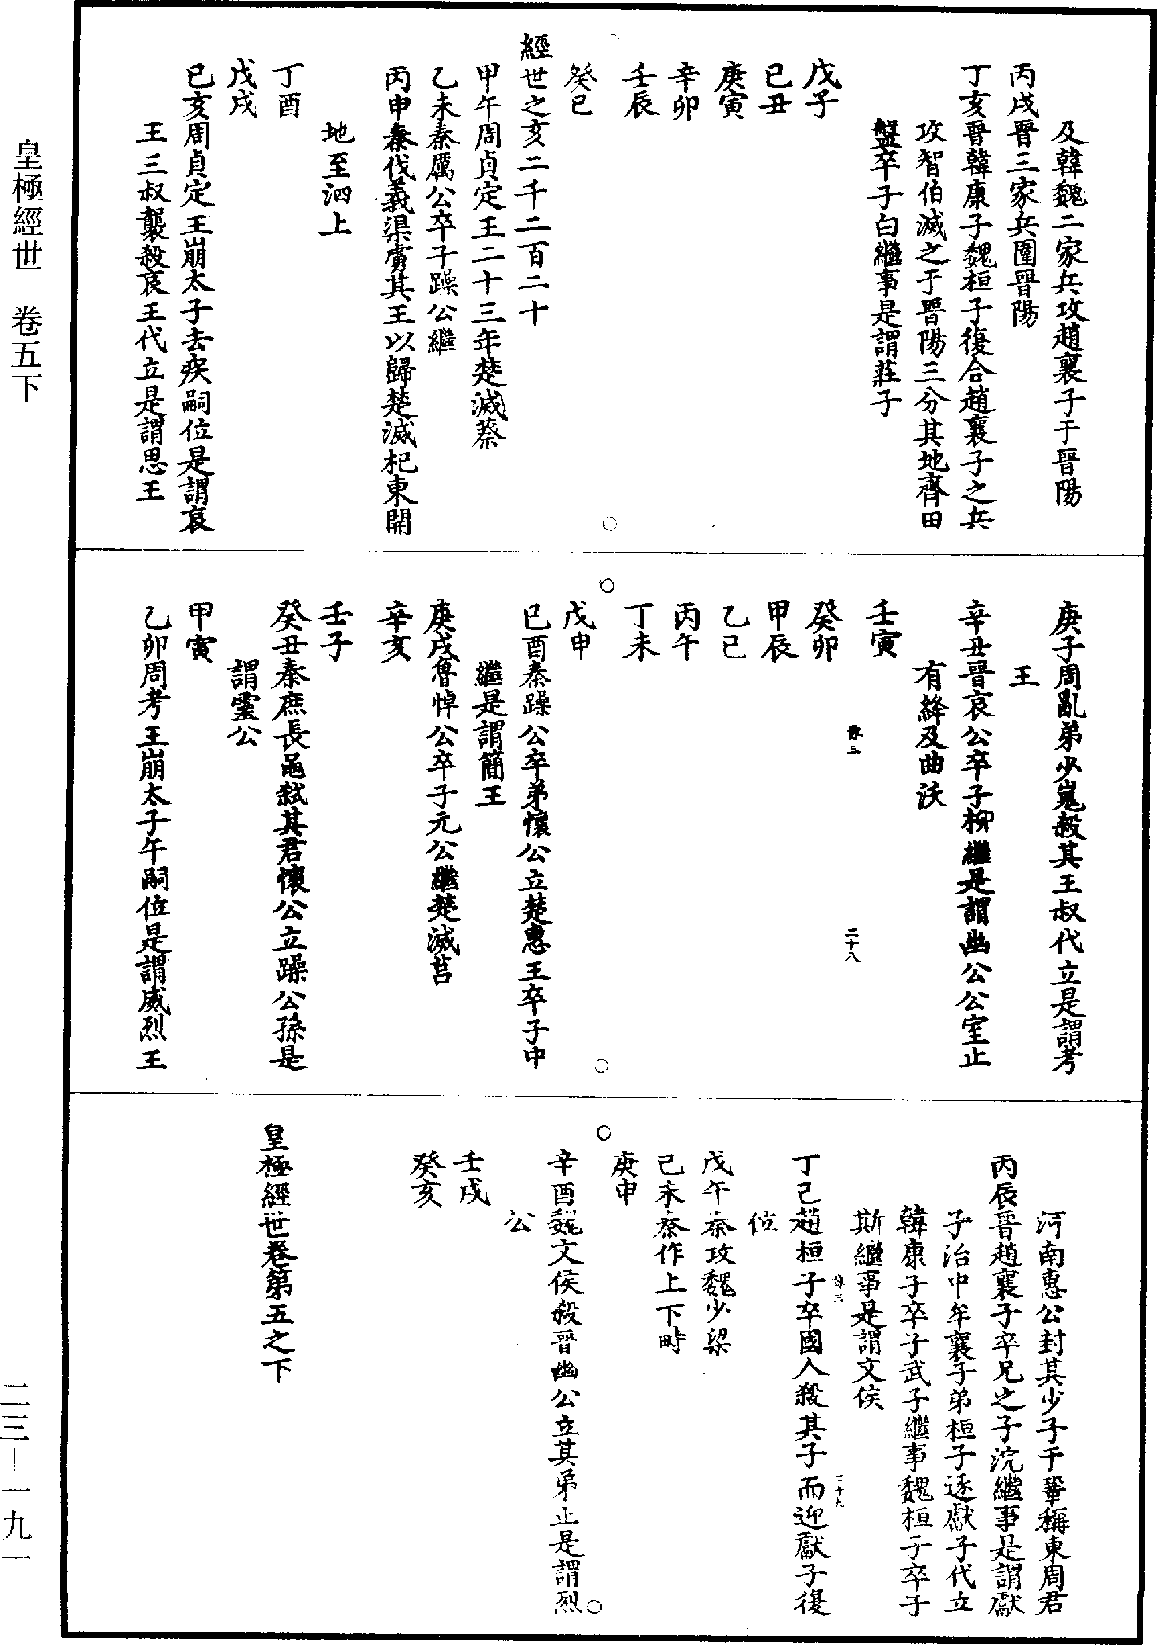 及韓魏二家兵攻趙襄子于晉陽
丙戌晉三家兵圍晉陽
丁亥晉韓康子魏桓子復合趙襄子之兵
攻智伯滅之于晉陽三分其地齊田
盤卒子白繼事是謂莊子
戊子
己丑
庚寅
辛卯
壬辰
癸巳
經世之亥二千二百二十
甲午周貞定王二十三年楚滅蔡
乙未秦厲公卒子躁公繼
丙申秦伐義渠虜其王以歸楚滅杞東開
地至泗上
丁酉
戊戌
己亥周貞定王崩太子去疾嗣位是謂哀
王三叔襲殺哀王代立是謂思王
庚子周亂弟少嵬殺其王叔代立是謂考
王
辛丑晉哀公卒子柳繼是謂幽公公室止
有絳及曲沃
壬寅
癸卯
甲辰
乙巳
丙午
丁未
戊申
己酉秦躁公卒弟懷公立楚惠王卒子中
繼是謂簡王
庚戌魯悼公卒子元公繼楚滅莒
辛亥
壬子
癸丑秦庶長黽弒其君懷公立躁公孫是
謂靈公
甲寅
乙卯周考王崩太子午嗣位是謂威烈王
河南惠公封其少子于鞏稱東周君
丙辰晉趙襄子卒兄之子浣繼事是謂獻
子治中牟襄子弟桓子逐獻子代立
韓康子卒子武子繼事魏桓子卒子
斯繼事是謂文侯
丁巳趙桓子卒國人殺其子而迎獻子復
位
戊午秦攻魏少梁
己未秦作上下畤
庚申
辛酉魏文侯殺晉幽公立其弟止是謂烈
公
壬戌
癸亥
皇極經世卷第五之下
皇極經世 卷五下
二三—一九一
二十八
二十九